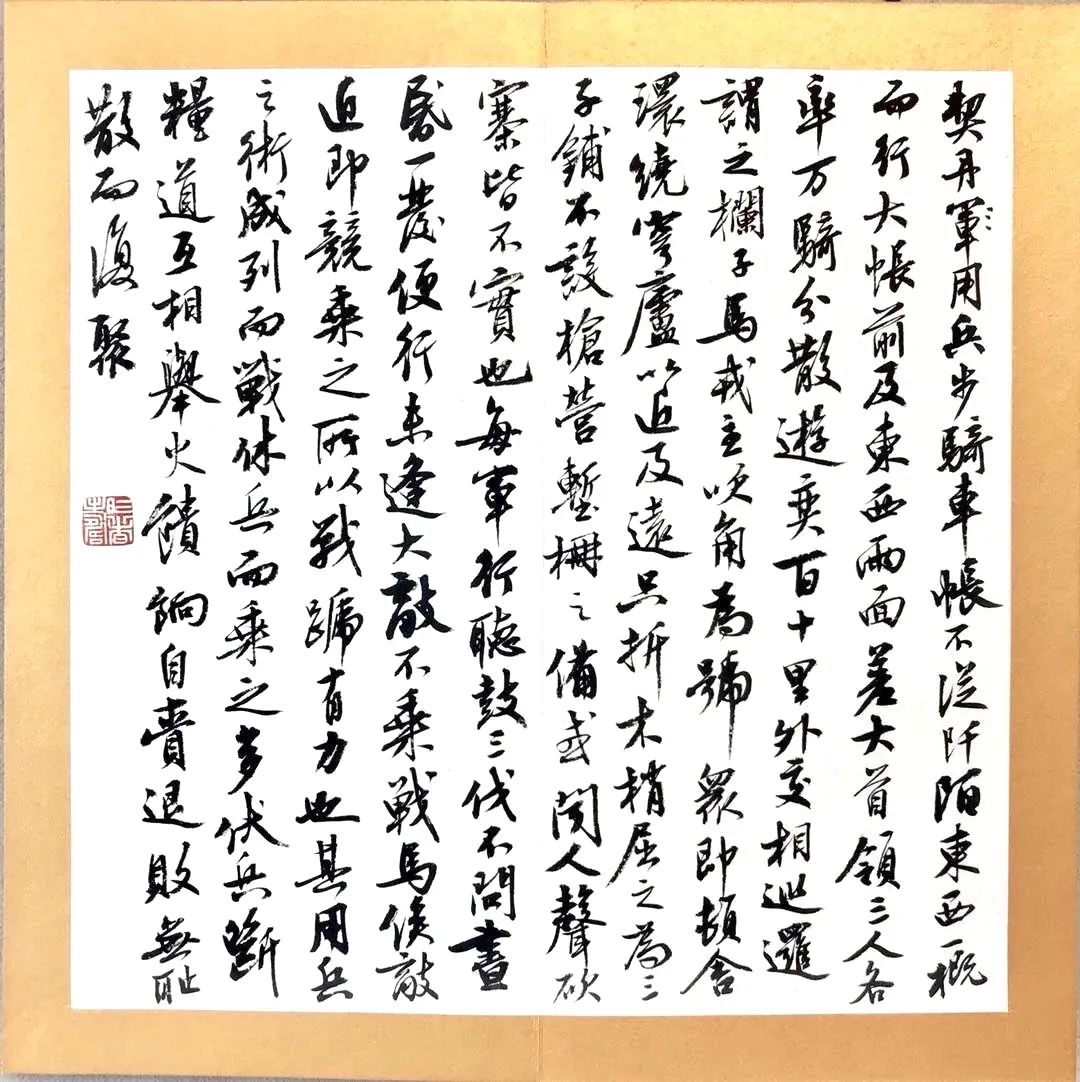 契丹軍用兵步騎車帳不從阡陌東西一概
而行大帳前及東西兩面差大首領三人各
率万騎分散遊奕百十里外交相巡邏
謂之欄子馬戎主吹角為號眾即頓舍
環繞穹廬以近及遠只折木梢屈之為三
子鋪不設槍營塹柵之備或聞人聲砍
寨皆不實也每軍行聽鼓三伐不問晝
昏一發便行未逢大敵不乘戰馬俟敵
近即競乘之所以戰蹄有力也其用兵
之術成列而戰休兵而乘之多伏兵斷
糧道互相舉火饋餉自賫退敗無恥
散而復聚